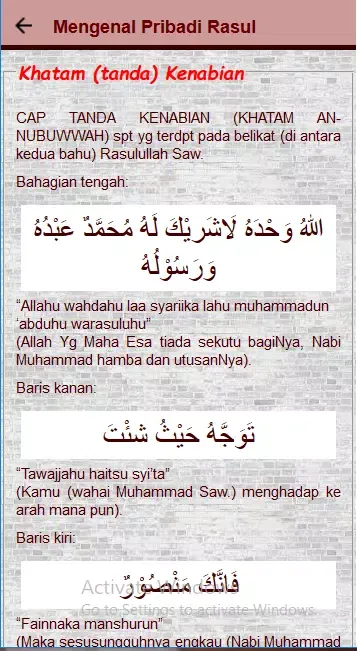 Mengenal Pribadi Rasul
Khatam (tanda) Kenabian
CAP TANDA KENABIAN (KHATAM AN-
NUBUWWAH) spt yg terdpt pada belikat (di antara
kedua bahu) Rasulullah Saw.
Bahagian tengah:
اللهُ وَحْدَهُ لَاشَرِيْكَ لَهُ مُحَمَّدٌ عَبْدُهُ
وَرَسُوْلُهُ
“Allahu wahdahu laa syariika lahu muhammadun
‘abduhu warasuluhu”
(Allah Yg Maha Esa tiada sekutu bagiNya, Nabi
Muhammad hamba dan utusanNya).
Baris kanan:
تَوَجَّهُ حَيْثُ شِئْتَ
“Tawajjahu haitsu syi’ta”
(Kamu (wahai Muhammad Saw.) menghadap ke
arah mana pun).
Baris kiri:
فَاِنَّكَ مَنْصُوْرٌ
Activate Windows
Go to Settings to activate Windows.
“Fainnaka manshurun”
(Maka sesusungguhnya engkau (Nabi Muhammad